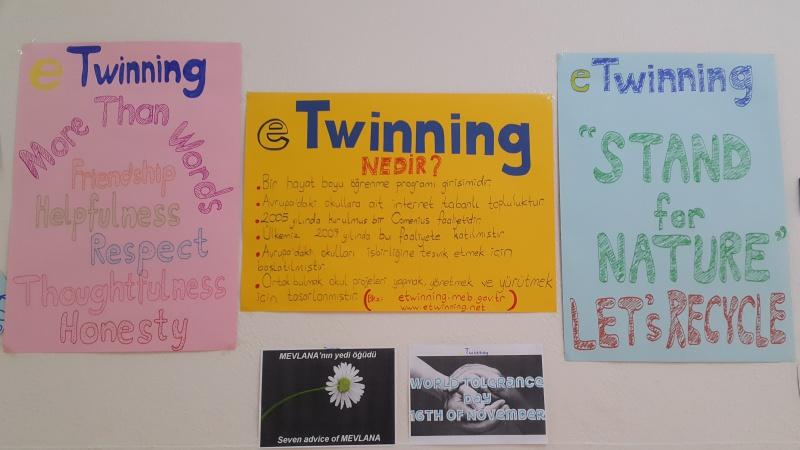 e Twinning
More Than Words
Friendship
Helpfulness
Respect
Thoughtfulness
Honesty
e Twinning
NEDİR?
• Bir hayat boyu öğrenme programı girişimidir.
• Avrupa'daki okullara ait internet tabanlı topluluktur.
• 2005 yılında kurulmuş bir Comenius faaliyetidir.
• Ülkemiz 2009 yılında bu faaliyete katılmıştır.
• Avrupa'daki okulları işbirliğine teşvik etmek için
başlatılmıştır.
• Ortak bulmak, okul projeleri yapmak, yönetmek ve yürütmek
için tasarlanmıştır. (Bkz: etwinning.meb.gov.tr
www.etwinning.net)
e Twinning
"STAND
for
NATURE"
LET's RECYCLE
MEVLANA'nın yedi öğüdü
Seven advice of MEVLANA
Twinning
WORLD TOLERANCE
DAY
16TH OF NOVEMBER